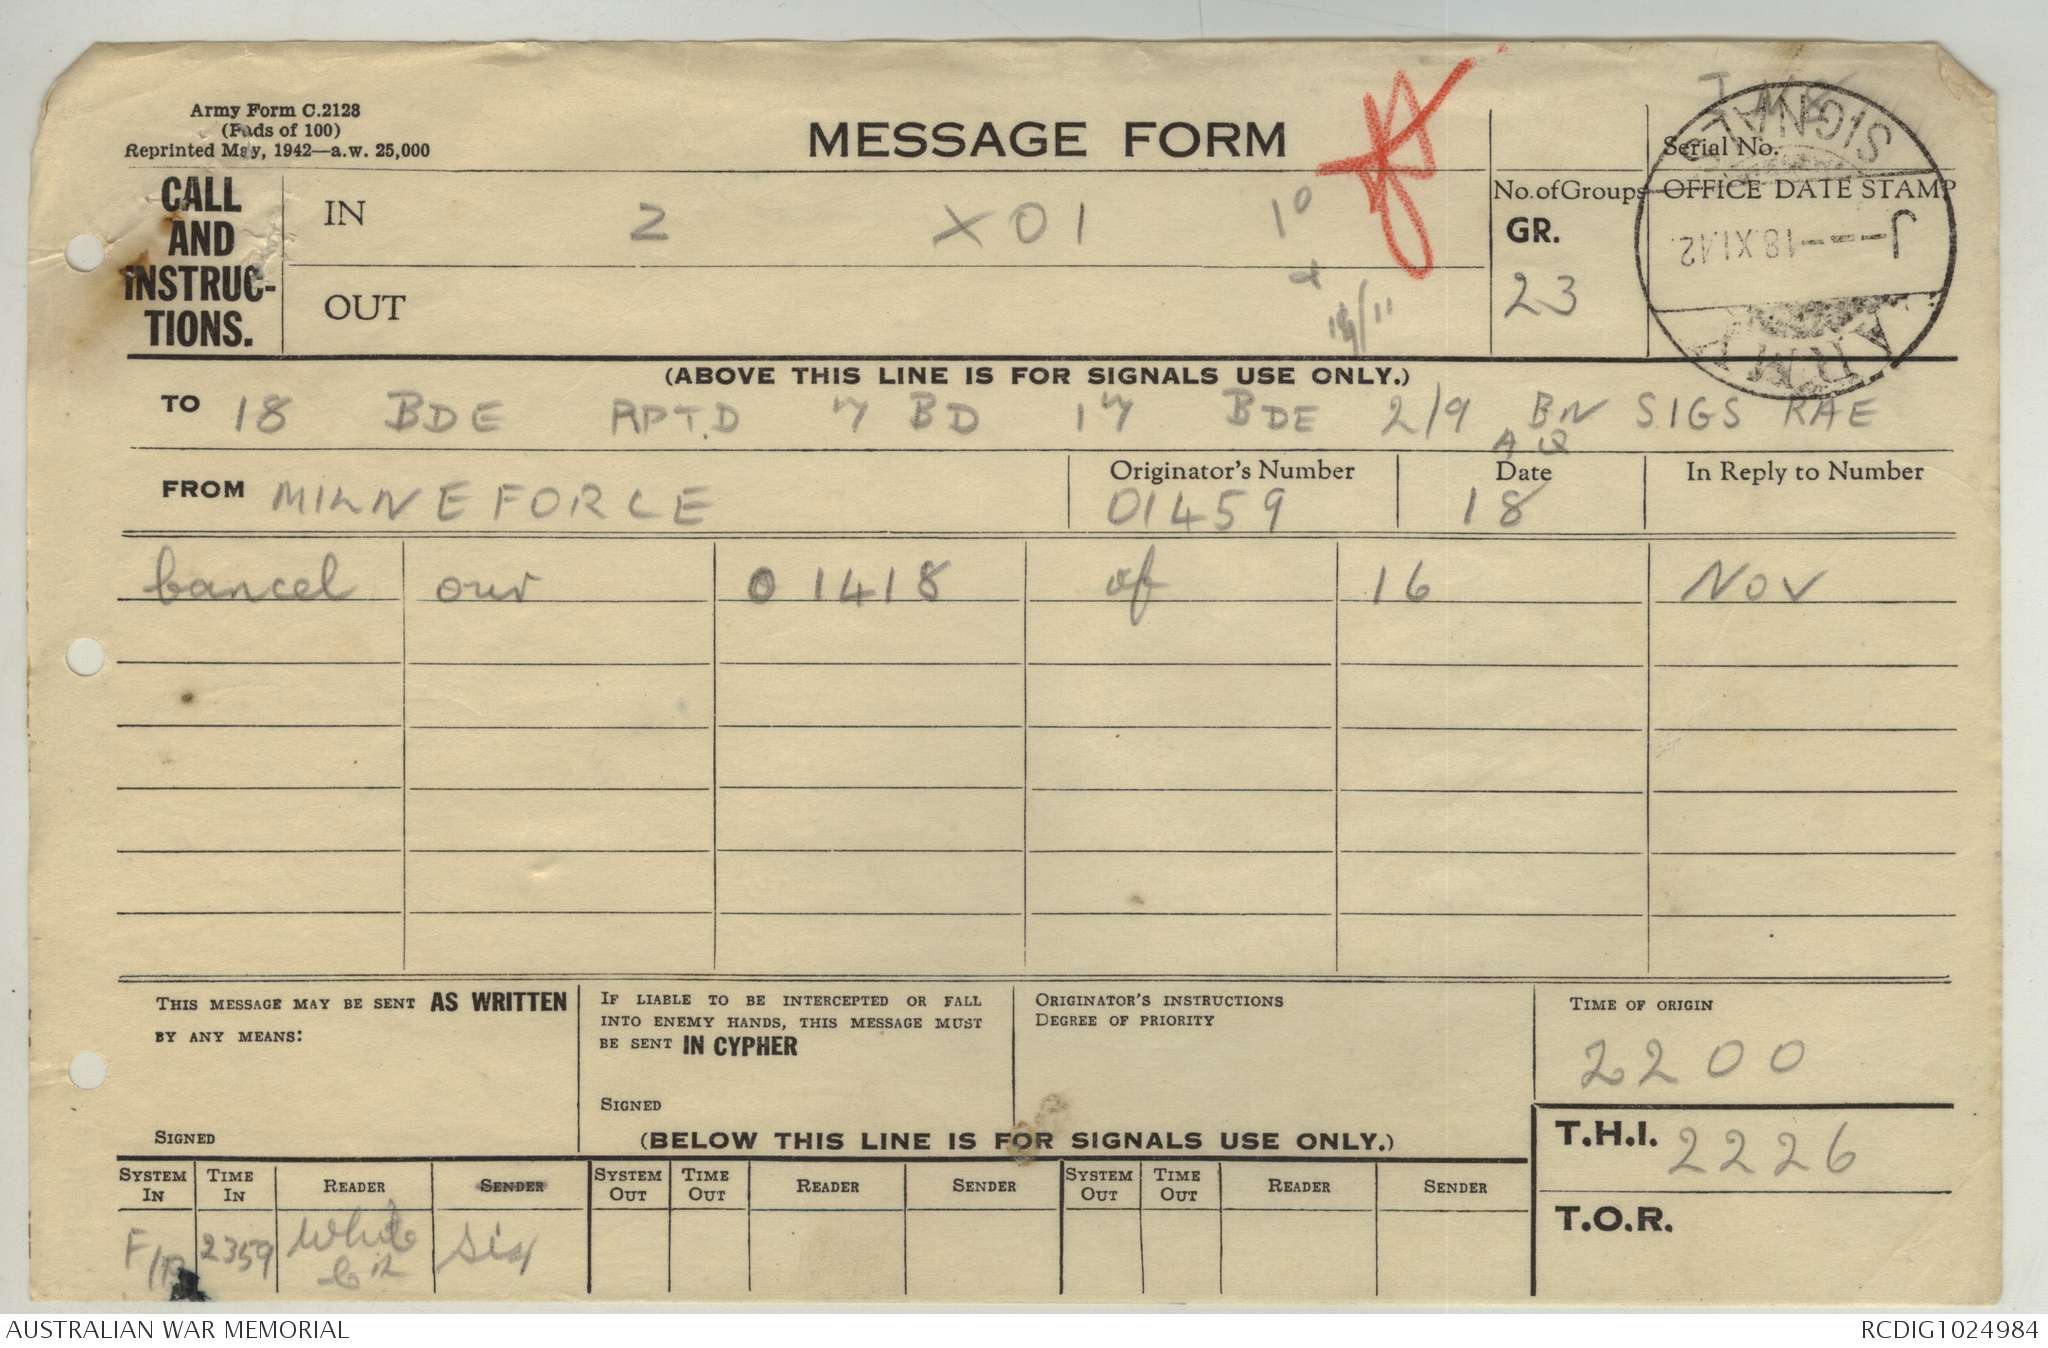 Army Form C.2128
(Pads of 100)
Reprinted May, 1942—a.w. 25,000
MESSAGE FORM
Serial No.
CALL AND INSTRUC-TIONS.
IN 2 XO1 10
OUT
19/11
No. of Groups
GR.
23
OFFICE DATE STAMP
SIGNAL
J---18.XI.42
ARMY
(ABOVE THIS LINE IS FOR SIGNALS USE ONLY.)
TO 18 BDE RPT.D 7 BD 17 BDE 2/9 BN SIGS RAE
A Q
FROM MILNEFORCE
Originator's Number
01459
Date
18
In Reply to Number
Cancel our 01418 of 16 NOV
THIS MESSAGE MAY BE SENT AS WRITTEN
BY ANY MEANS:
SIGNED
IF LIABLE TO BE INTERCEPTED OR FALL
INTO ENEMY HANDS, THIS MESSAGE MUST
BE SENT IN CYPHER
SIGNED
ORIGINATOR'S INSTRUCTIONS
DEGREE OF PRIORITY
TIME OF ORIGIN
2200
(BELOW THIS LINE IS FOR SIGNALS USE ONLY.)
T.H.I. 2226
T.O.R.
SYSTEM IN TIME IN READER SENDER SYSTEM OUT TIME OUT READER SENDER SYSTEM OUT TIME OUT READER SENDER
2359
AUSTRALIAN WAR MEMORIAL
RCDIG1024984